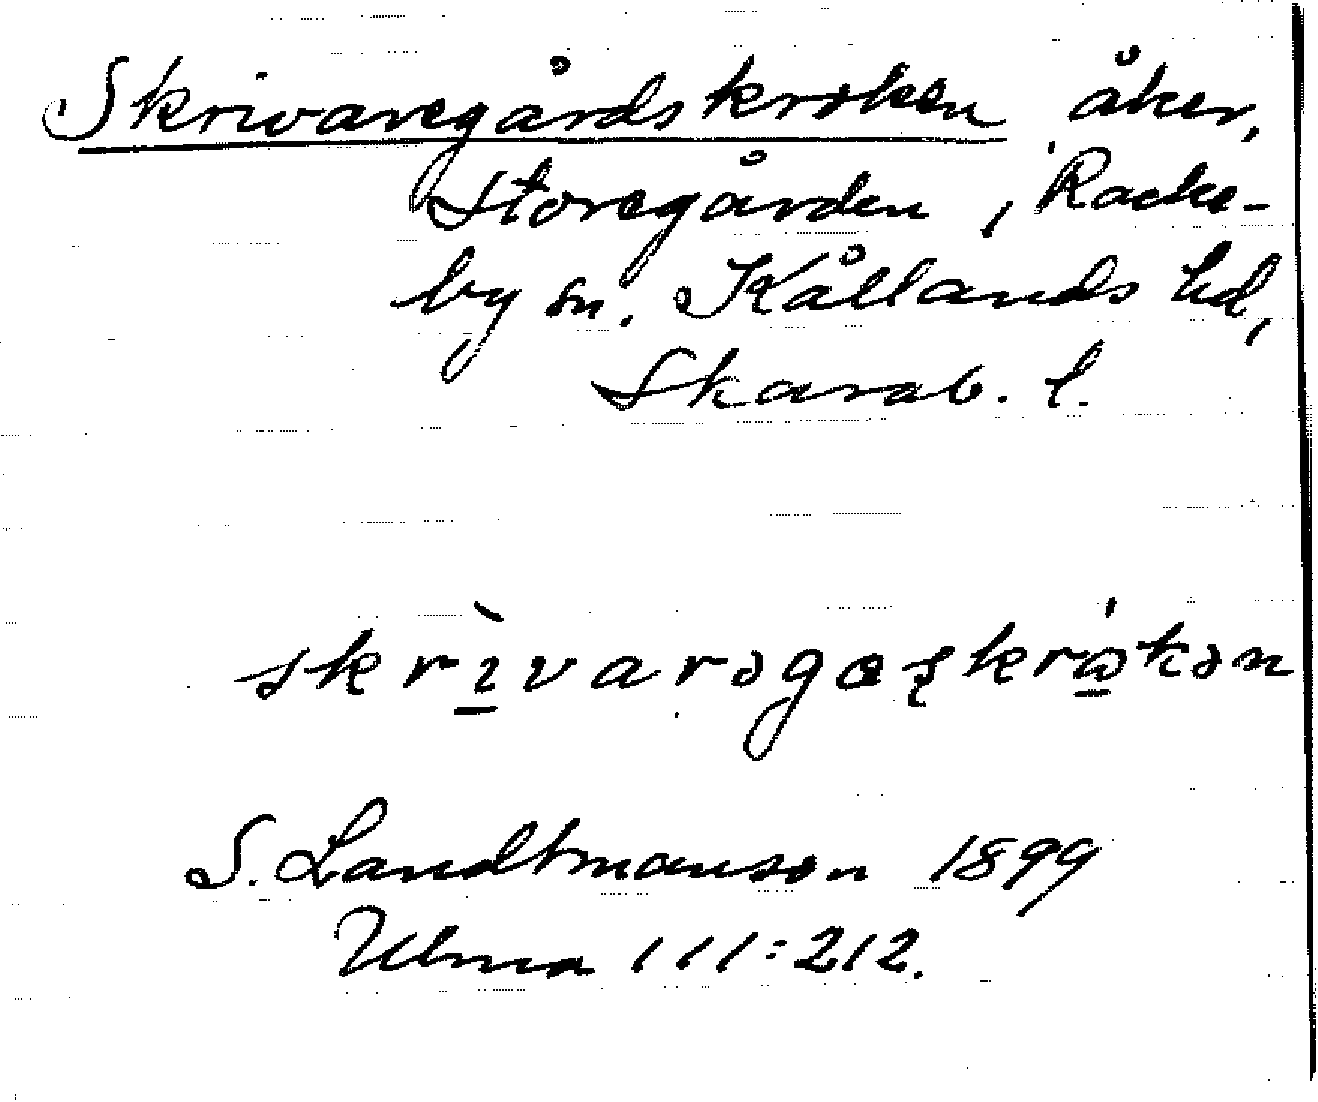 Skrivaregårdskroken åker,
Storegården, Racke-
by sn. Kållands hd,
Skarab. l.
S. Landtmanson 1899
Ulma 111:212.